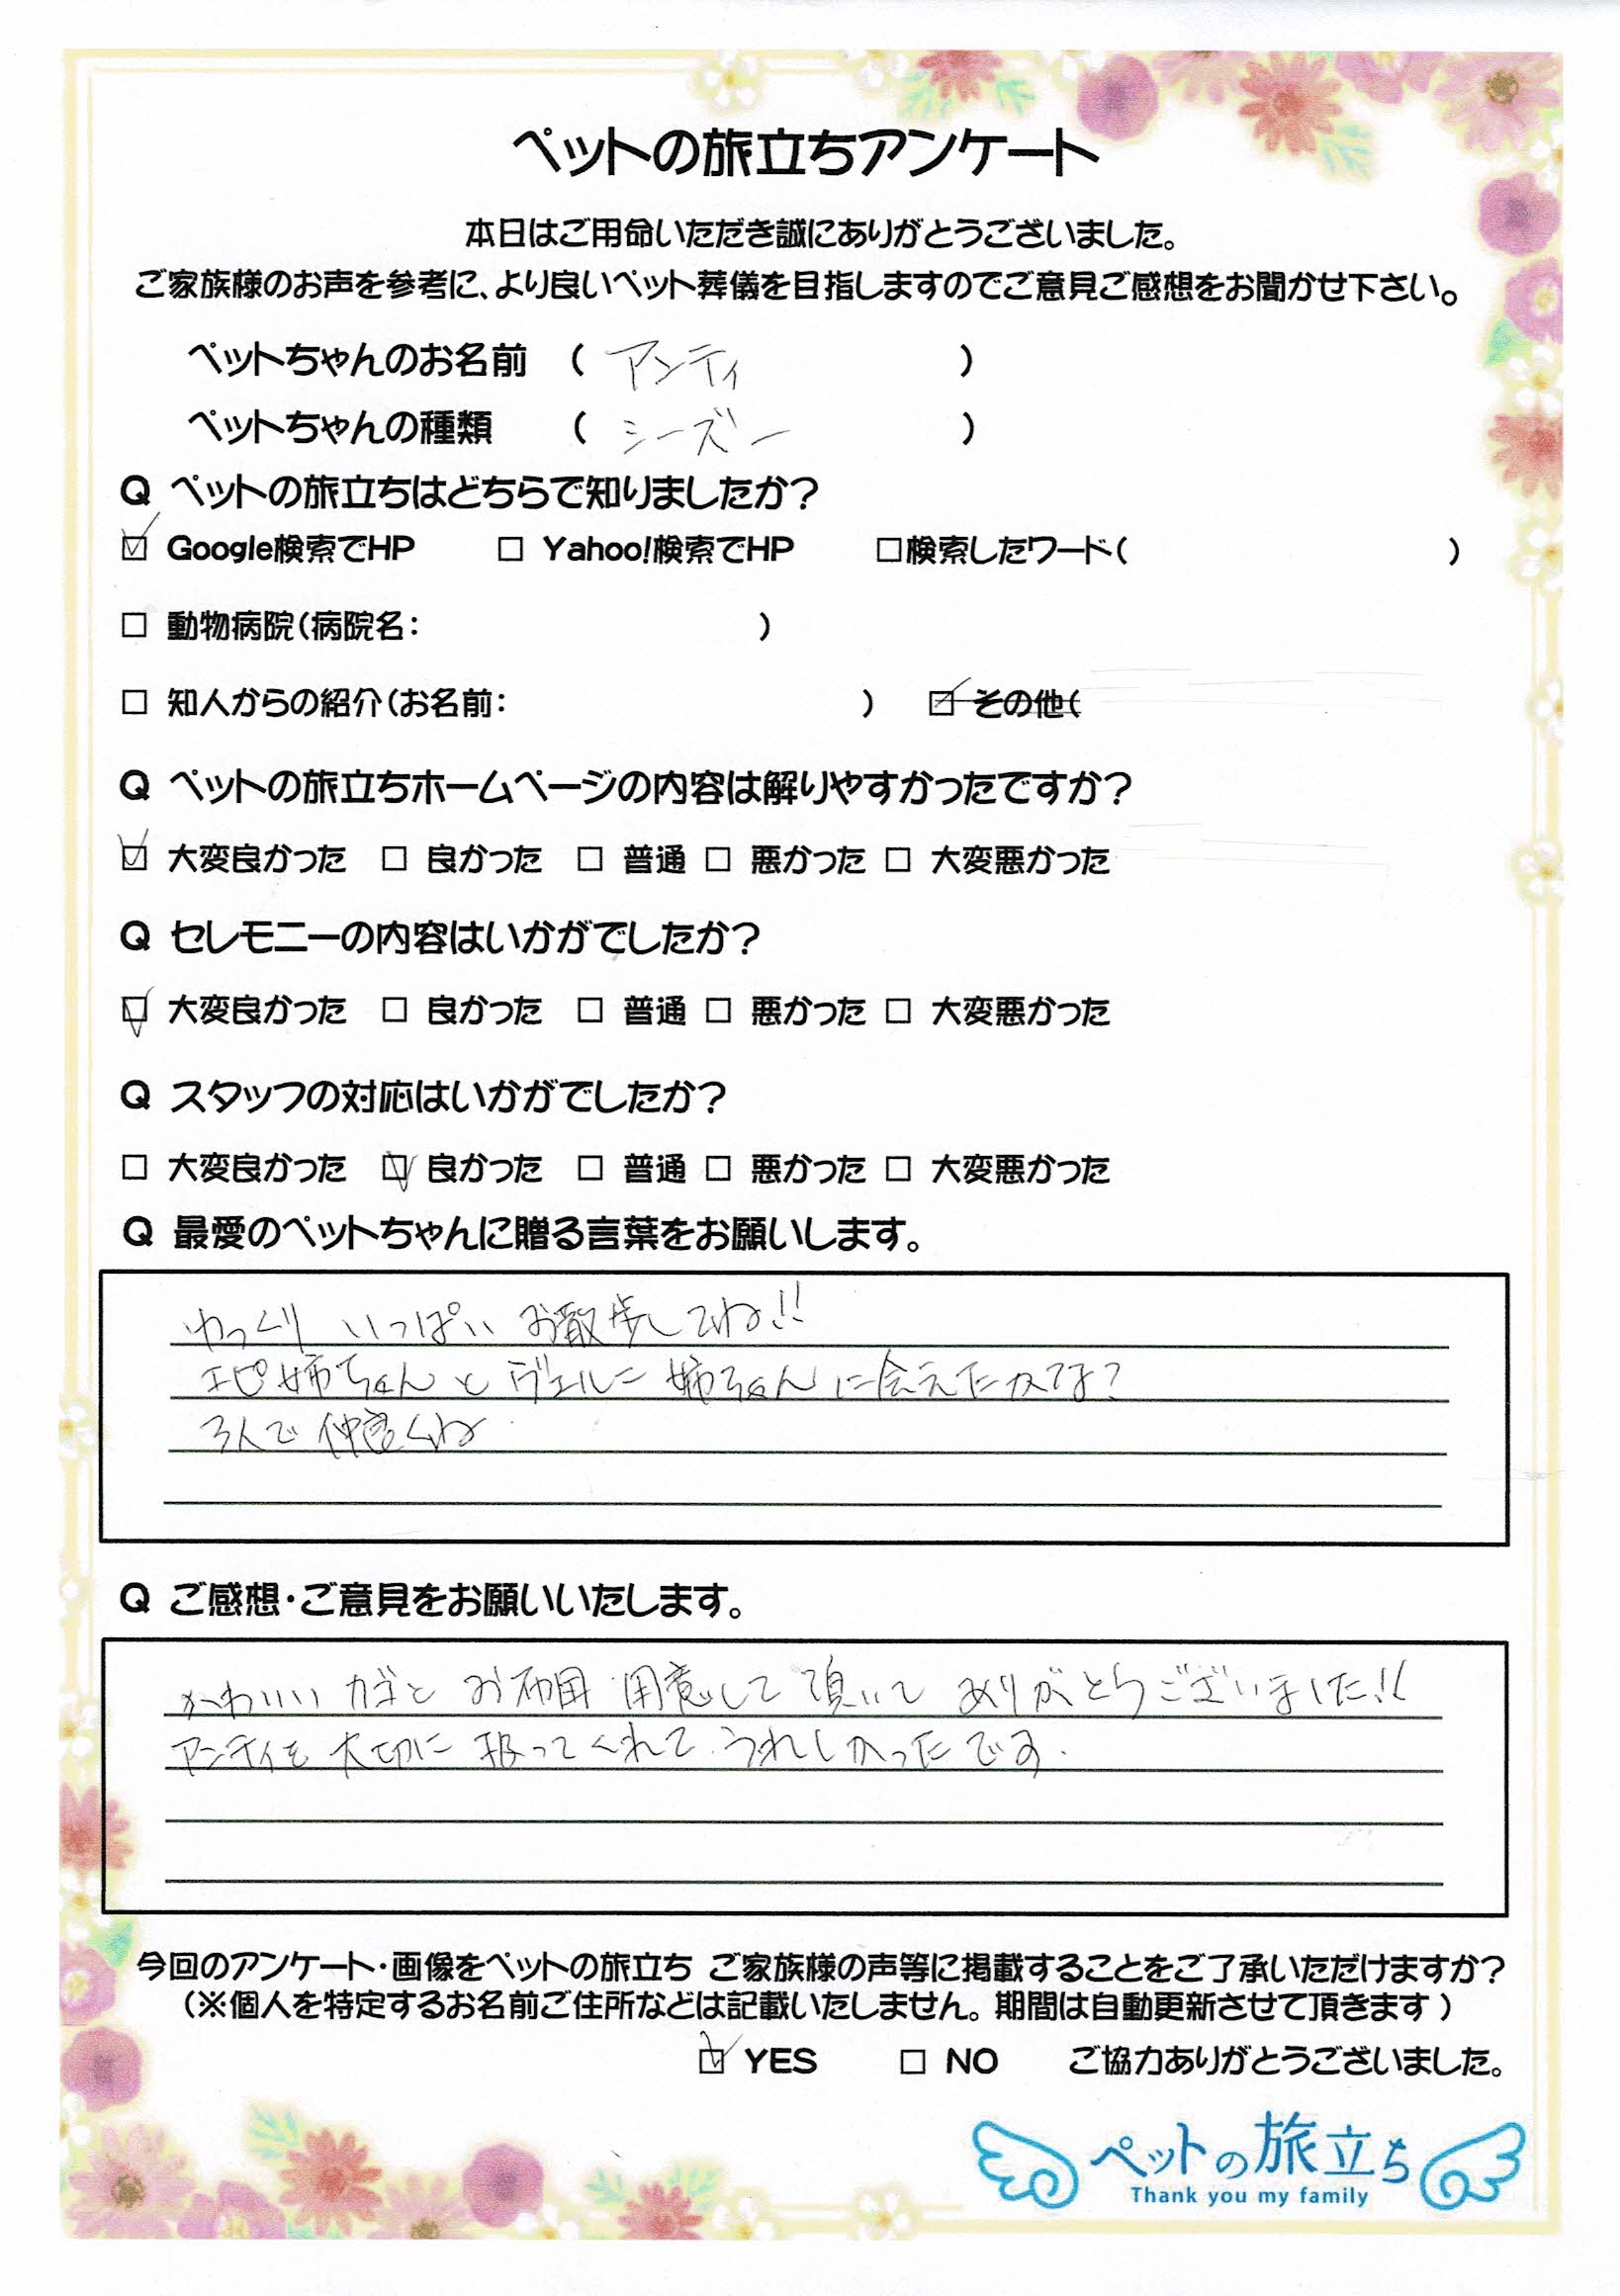 ペットの旅立ちアンケート
本日はご用命いただき誠にありがとうございました。
ご家族様のお声を参考に、より良いペット葬儀を目指しますのでご意見ご感想をお聞かせ下さい。
ペットちゃんのお名前 ( アンティ )
ペットちゃんの種類 ( シーズー )
Q ペットの旅立ちはどちらで知りましたか?
☑ Google検索でHP □ Yahoo!検索でHP □検索したワード( )
□ 動物病院(病院名: )
□ 知人からの紹介(お名前: ) ☑ その他(
Q ペットの旅立ちホームページの内容は解りやすかったですか?
☑ 大変良かった □ 良かった □ 普通 □ 悪かった □ 大変悪かった
Q セレモニーの内容はいかがでしたか?
☑ 大変良かった □ 良かった □ 普通 □ 悪かった □ 大変悪かった
Q スタッフの対応はいかがでしたか?
□ 大変良かった ☑ 良かった □ 普通 □ 悪かった □ 大変悪かった
Q 最愛のペットちゃんに贈る言葉をお願いします。
ゆっくり いっぱい お散歩してね!!
エピ姉ちゃんと ヴェルニ姉ちゃんに会えたかな?
3人で仲良くね
Q ご感想・ご意見をお願いいたします。
かわいい カゴと お布団 用意して頂いて ありがとうございました!!
アンティを 大切に 扱ってくれて うれしかったです.
今回のアンケート・画像をペットの旅立ち ご家族様の声等に掲載することをご了承いただけますか?
(※個人を特定するお名前ご住所などは記載いたしません。期間は自動更新させて頂きます )
☑ YES □ NO ご協力ありがとうございました。
ペットの旅立ち
Thank you my family